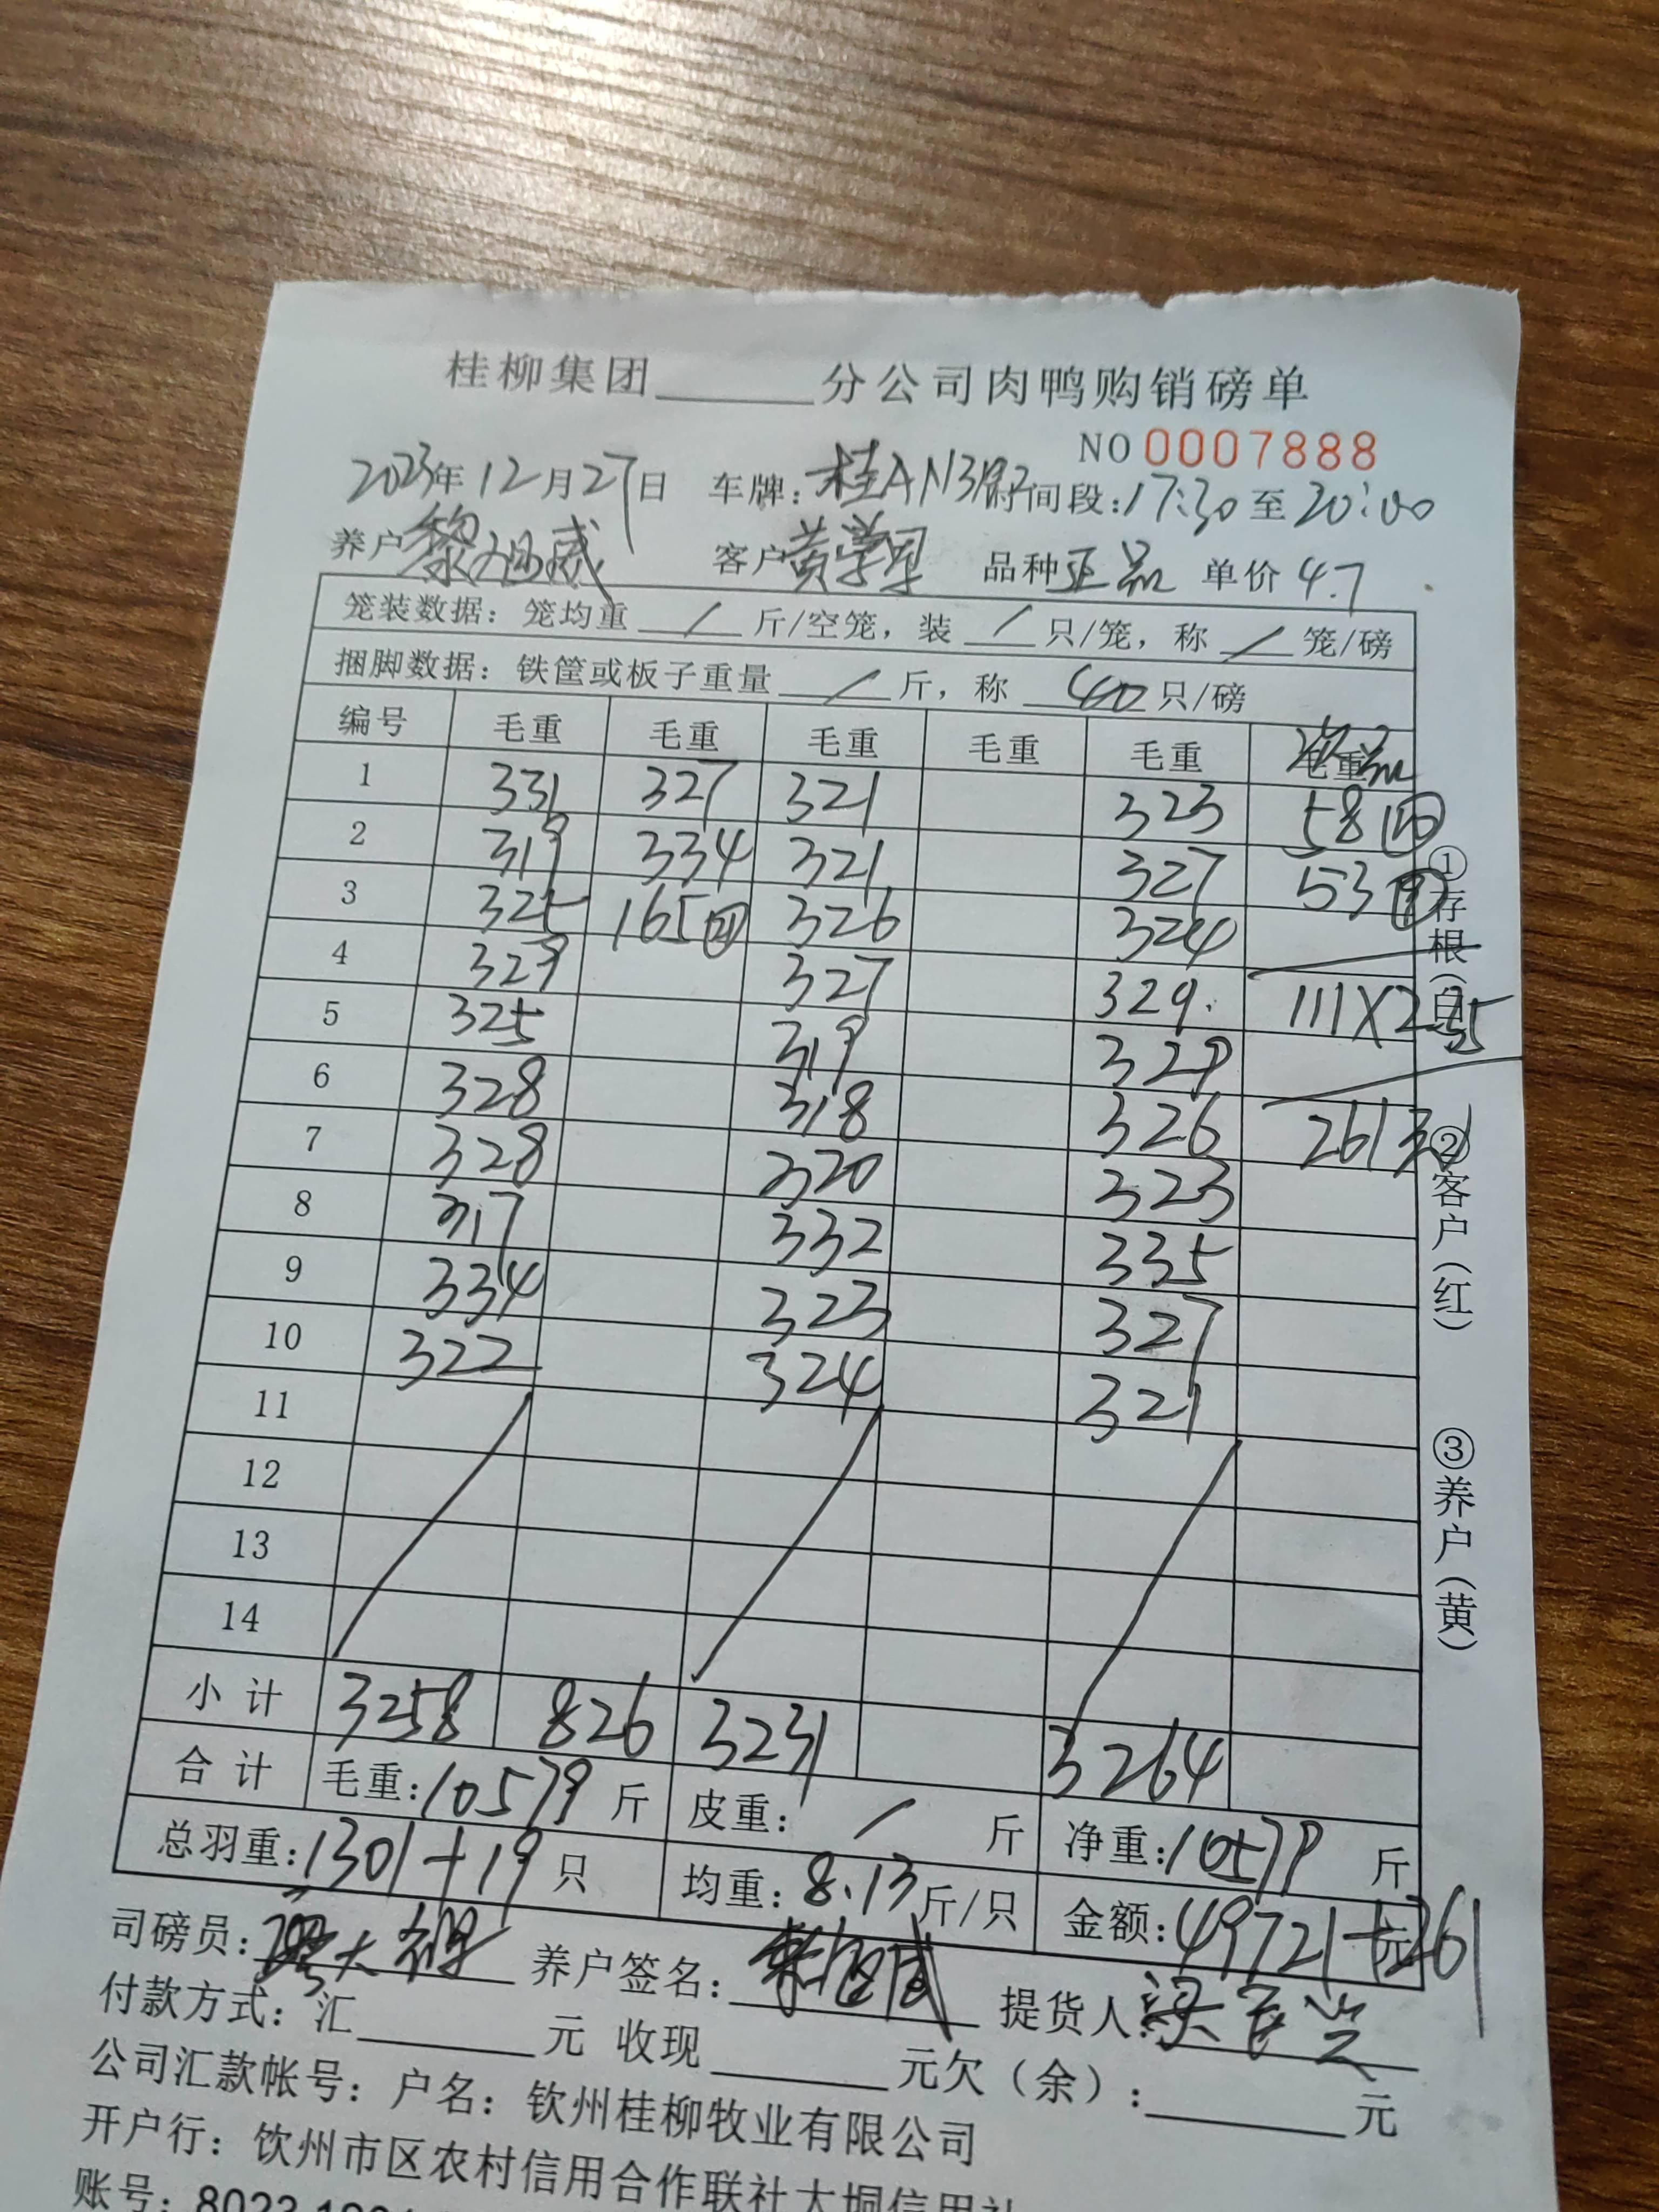 桂柳集团______分公司肉鸭购销磅单
NO 0007888
2023年12月27日 车牌:桂AN3 时间段:17:30至20:00
养户黎旭威 客户黄 品种正品 单价4.7
笼装数据:笼均重 / 斤/空笼,装 / 只/笼,称 / 笼/磅
捆脚数据:铁筐或板子重量 / 斤,称 40 只/磅
编号 毛重 毛重 毛重 毛重 毛重 毛重
1 331 327 321 323 58⑩
2 319 334 321 327 53⑨
3 325 165 326 324
4 329 327 329 111X2.35
5 325 319 329
6 328 318 326 261元
7 328 320 323
8 317 332 335
9 334 323 327
10 322 324 321
11
12
13
14
小计 3258 826 3231 3264
合计 毛重:10579斤 皮重: / 斤 净重:10579斤
总羽重:1301+19只 均重:8.13斤/只 金额:49721+261元
司磅员: 养户签名:黎旭威 提货人:
付款方式:汇______元 收现______元欠(余):______元
公司汇款帐号:户名:钦州桂柳牧业有限公司
开户行:钦州市区农村信用合作联社大垌信用社
账号:8023
①存根(白) ②客户(红) ③养户(黄)